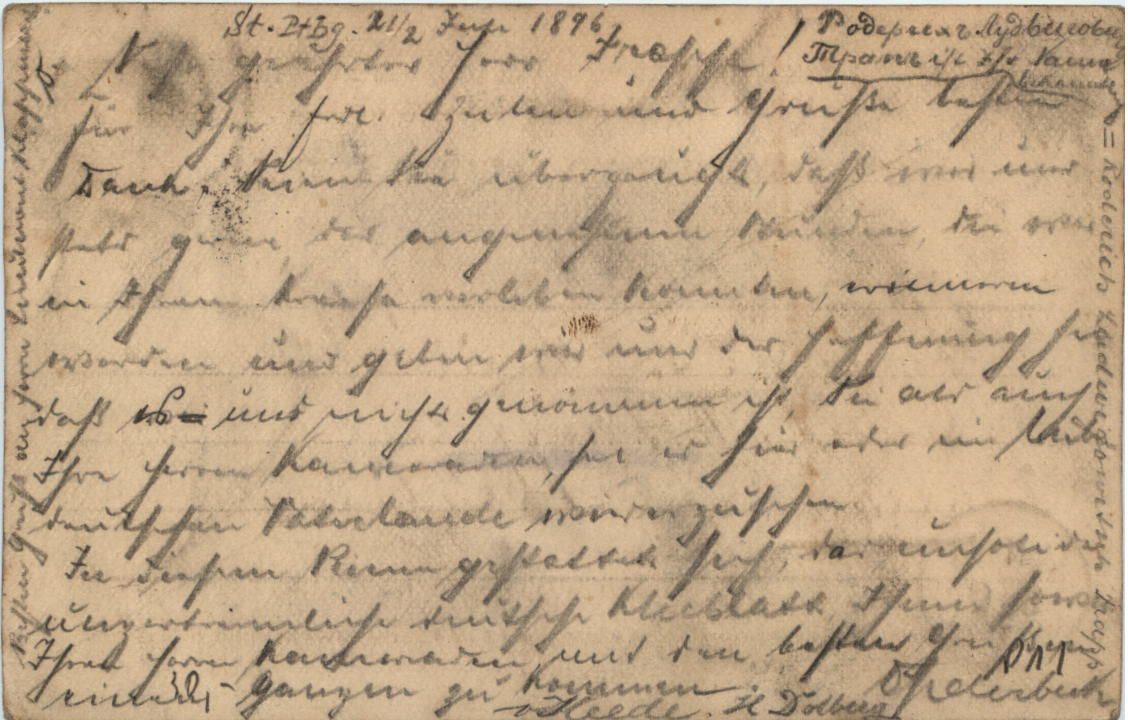 St. Ptbg. 21/2 Juni 1896
geehrter Herr
Für Ihre frdl. Zeilen und Grüße besten
Dank. Seien Sie überzeugt, daß wir uns
stets gern der angenehmen Stunden, die wir
in Ihrem Kreise verleben konnten, erinnern
werden und geben wir uns der Hoffnung hin
daß es uns nicht genommen ist, Sie als auch
Ihre Herren Kameraden, sei es hier oder im lieben
deutschen Vaterlande wiederzusehen.
In diesem Sinne gestattet sich, das unsolide
unzertrennliche deutsche Kleeblatt, Ihnen sowie
Ihren Herren Kameraden, mit den besten Grüßen
ganzen zu kommen.
H Dolberg
Родерихъ Лудвиговичъ
Трапъ i/c Ihr Name
= Roderich Ludwigowitsch Trapp
Besten Gruß an Herrn